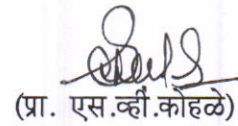 (प्रा. एस.व्ही.कोहळे)